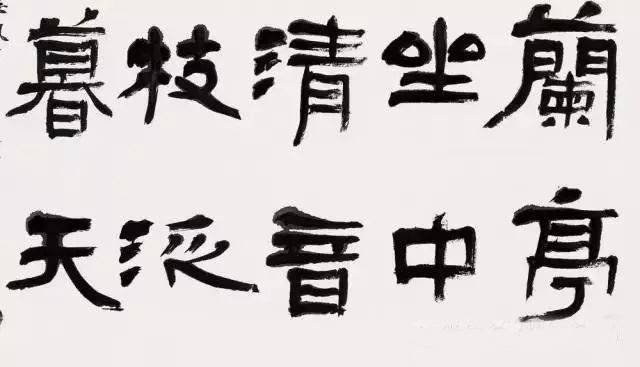 蘭亭
坐中
清音
枝派
暮天